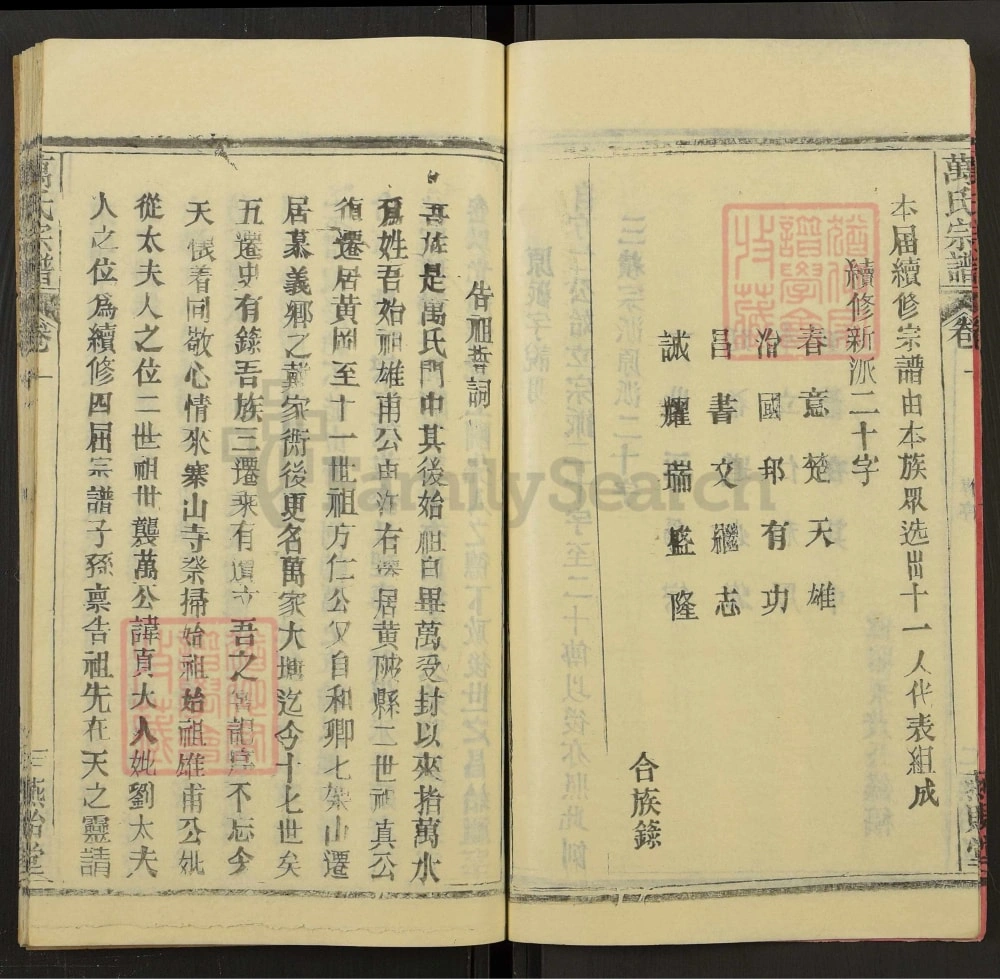 萬氏宗譜 卷一
本届續修宗譜由本族眾选出十一人代表組成
續修新派二十字
春意楚天雄
治國邦有功
昌書文繼志
誠耀瑞盛隆
合族錄
告祖誓詞
吾族是萬氏門中其後始祖自畢萬受封以來指萬水
爲姓吾始祖雄甫公由江右 居黄陂縣二世祖真公
復遷居黄岡至十一世祖方仁公又自和卿七架山遷
居慕義鄉之戴家衖後更名萬家大塆迄今十七世矣
五遷史有錄吾族三遷來有 吾之 不忘今
天儀着同敬心情來寨山寺祭掃始祖始祖雄甫公妣
從太夫人之位二世祖世襲萬公諱真大人妣劉太夫
人之位爲續修四届宗譜子孫禀告祖先在天之靈請
萬氏宗譜 卷一
三 燕貽堂
FamilySearch